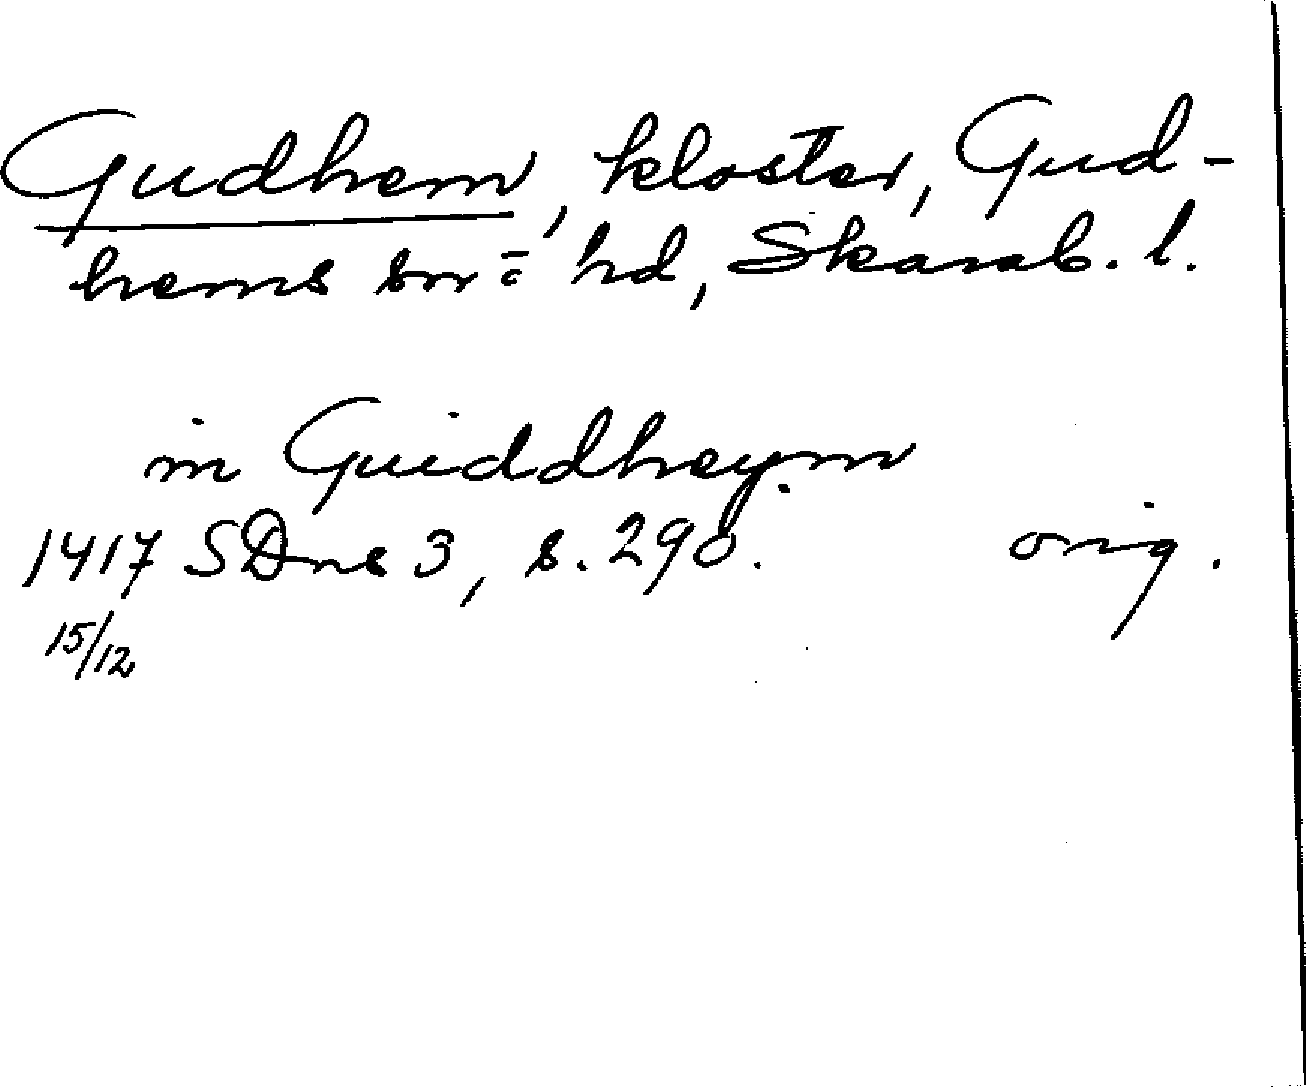 Gudhem, kloster, Gud-
hems sn o hd, Skarab. l.
in Guiddheym
1417 SDns 3, s. 290. orig.
15/12